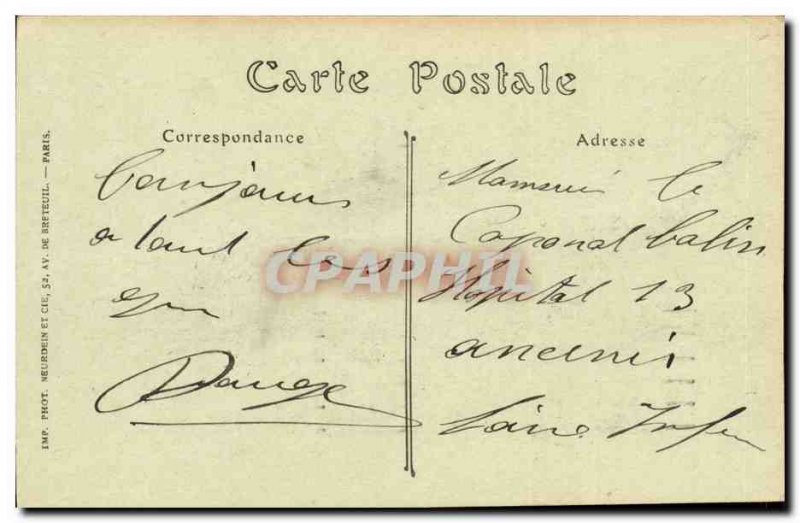 Carte Postale
Correspondance
Bonjours
a tout les
Adresse
le
Caporal Balin
Hôpital 13
ancenis
Loire Infer
CPAPHIL
IMP. PHOT. NEURDEIN ET CIE, 52, AV. DE BRETEUIL. — PARIS.